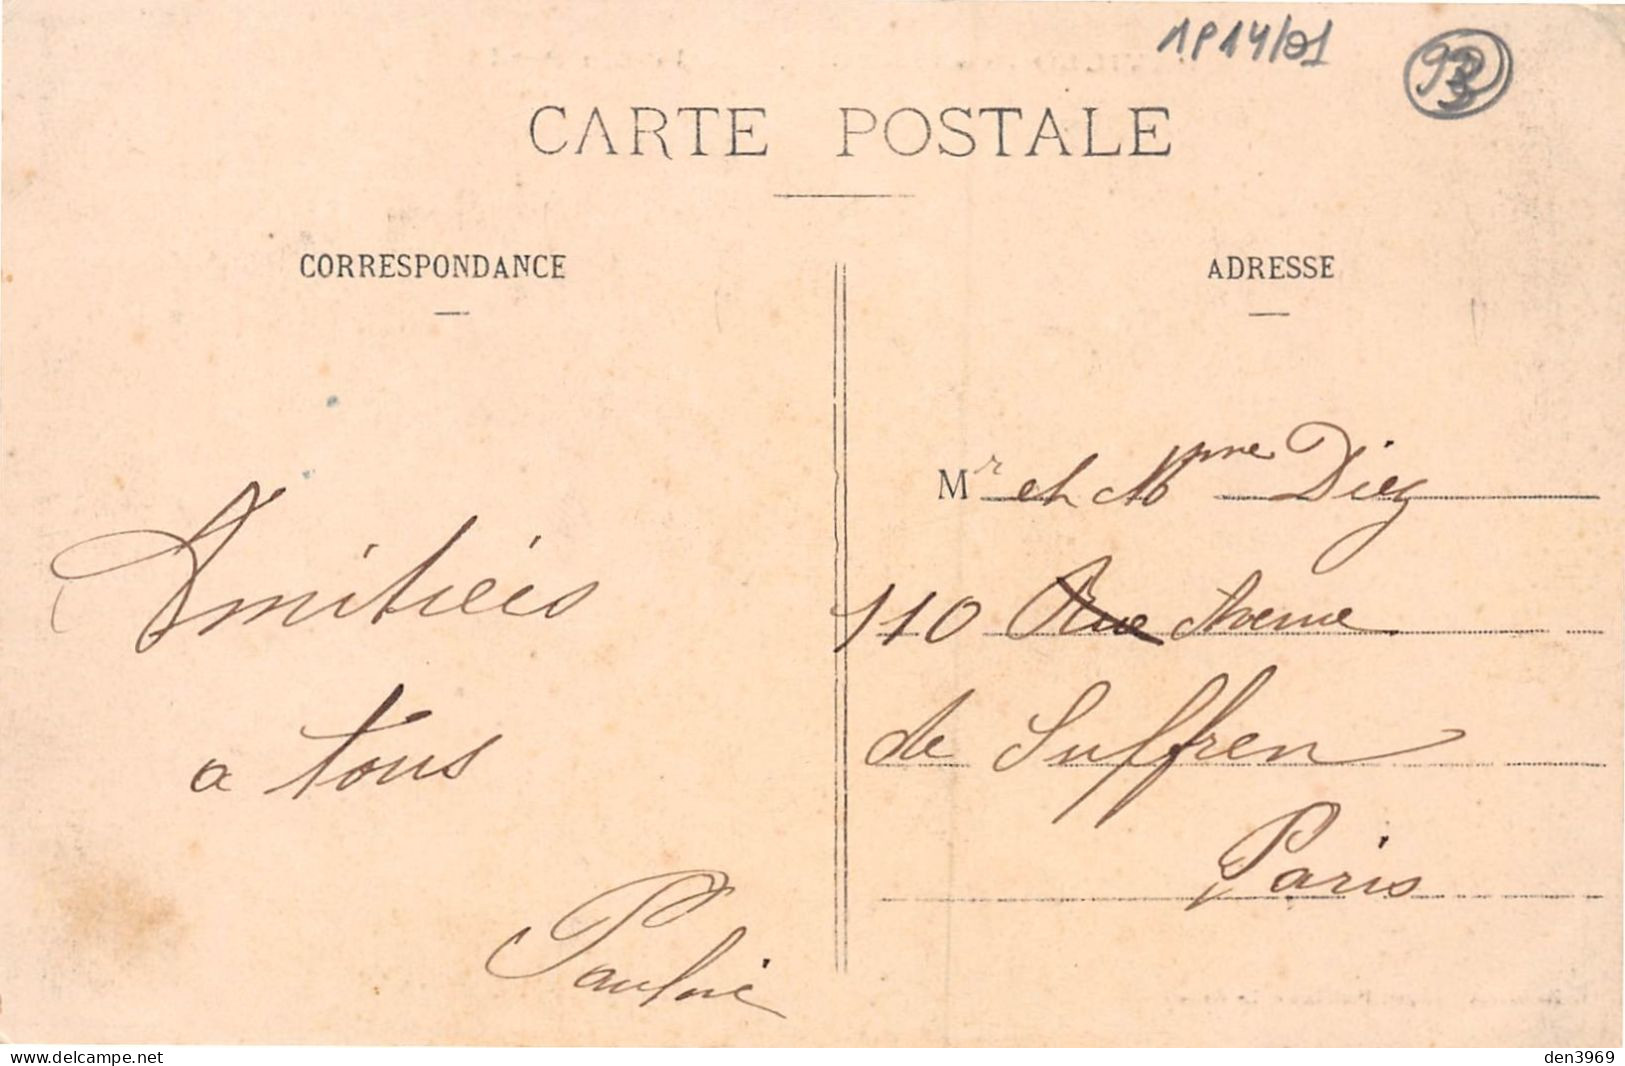 1P14/01
93
CARTE POSTALE
CORRESPONDANCE
ADRESSE
Mr et Mme Diez
110 Rue Avenue
de Suffren
Paris
Amitiés
a tous
www.delcampe.net
den3969